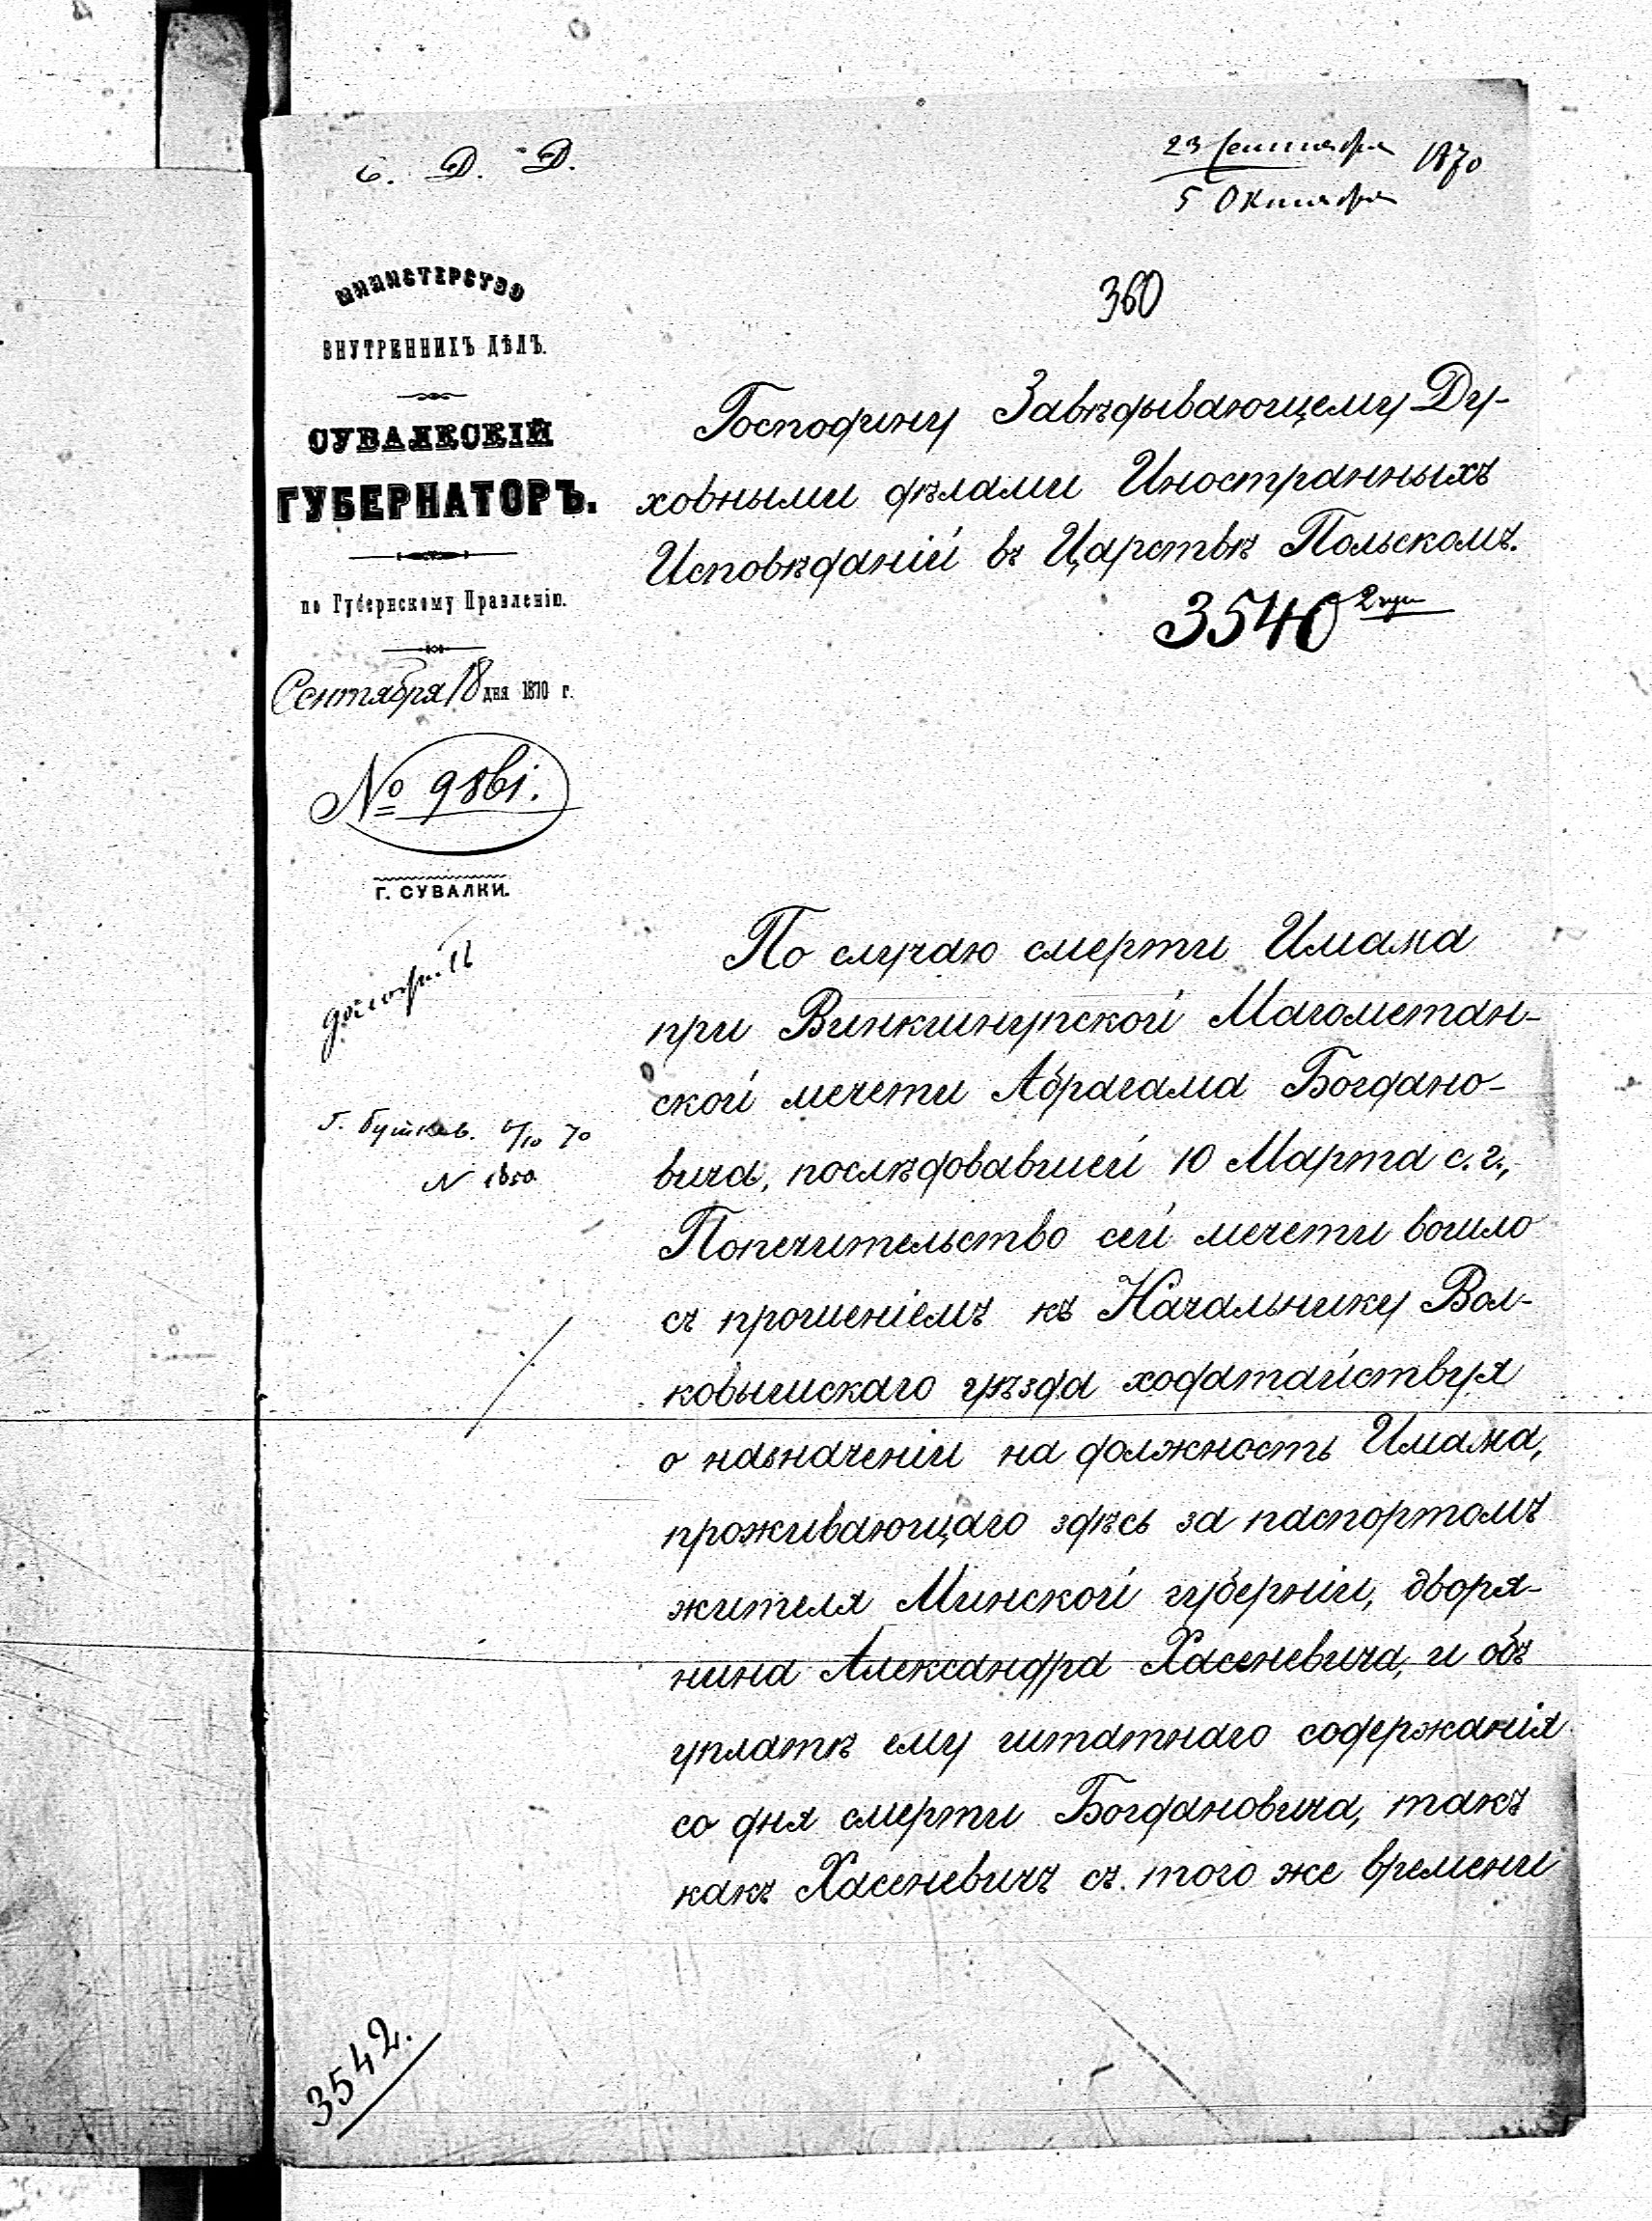 С. Д. Д.
23 Сентября 1870
5 Октября
360
МИНИСТЕРСТВО
ВНУТРЕННИХЪ ДѢЛЪ.
СУВАЛКСКІЙ
ГУБЕРНАТОРЪ.
по Губернскому Правленію.
Сентября 18 дня 1870 г.
№ 9861.
Г. СУВАЛКИ.
Господину Завѣдывающему Ду-
ховными дѣлами Иностранныхъ
Исповѣданій въ Царствѣ Польскомъ.
3540
По случаю смерти Имама
при Винкшнупской Магометан-
ской мечети Абрагама Богдано-
вича, послѣдовавшей 10 Марта с. г.,
Попечительство сей мечети вошло
съ прошеніемъ къ Начальнику Вол-
ковышскаго уѣзда ходатайствуя
о назначеніи на должность Имама,
проживающаго здѣсь за паспортомъ
жителя Минской губерніи, дворя-
нина Александра Хасеневича, и объ
уплатѣ ему штатнаго содержанія
со дня смерти Богдановича, такъ
какъ Хасеневичъ съ того же времени
3542.